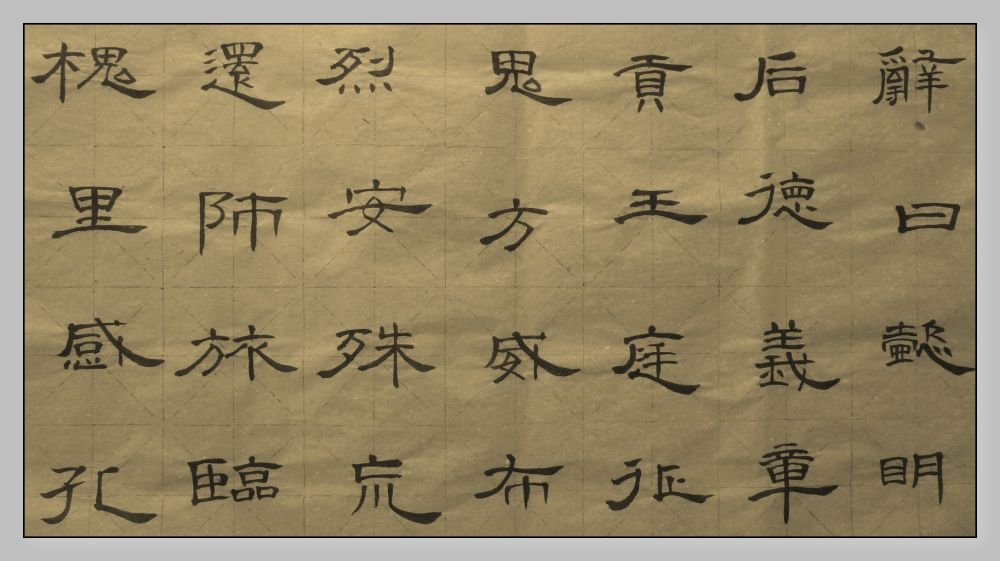 辭曰懿明
后德義章
貢王庭征
鬼方威布
烈安殊巟
還師旅臨
槐里感孔